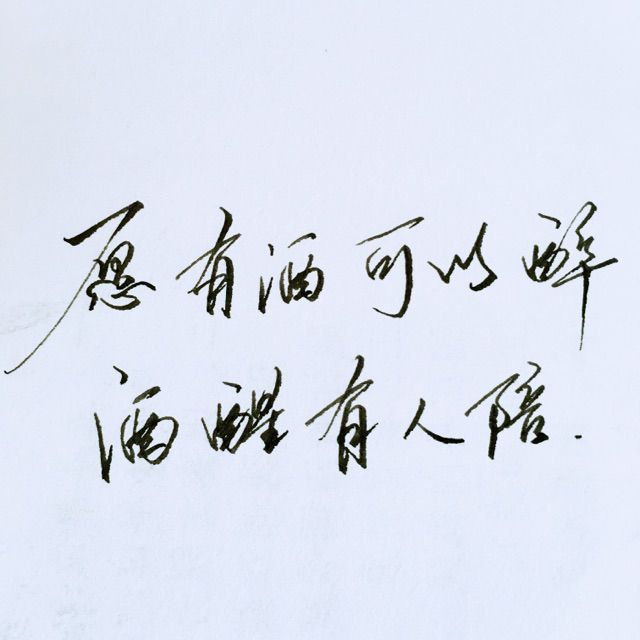 愿有酒可以醉
酒醒有人陪.